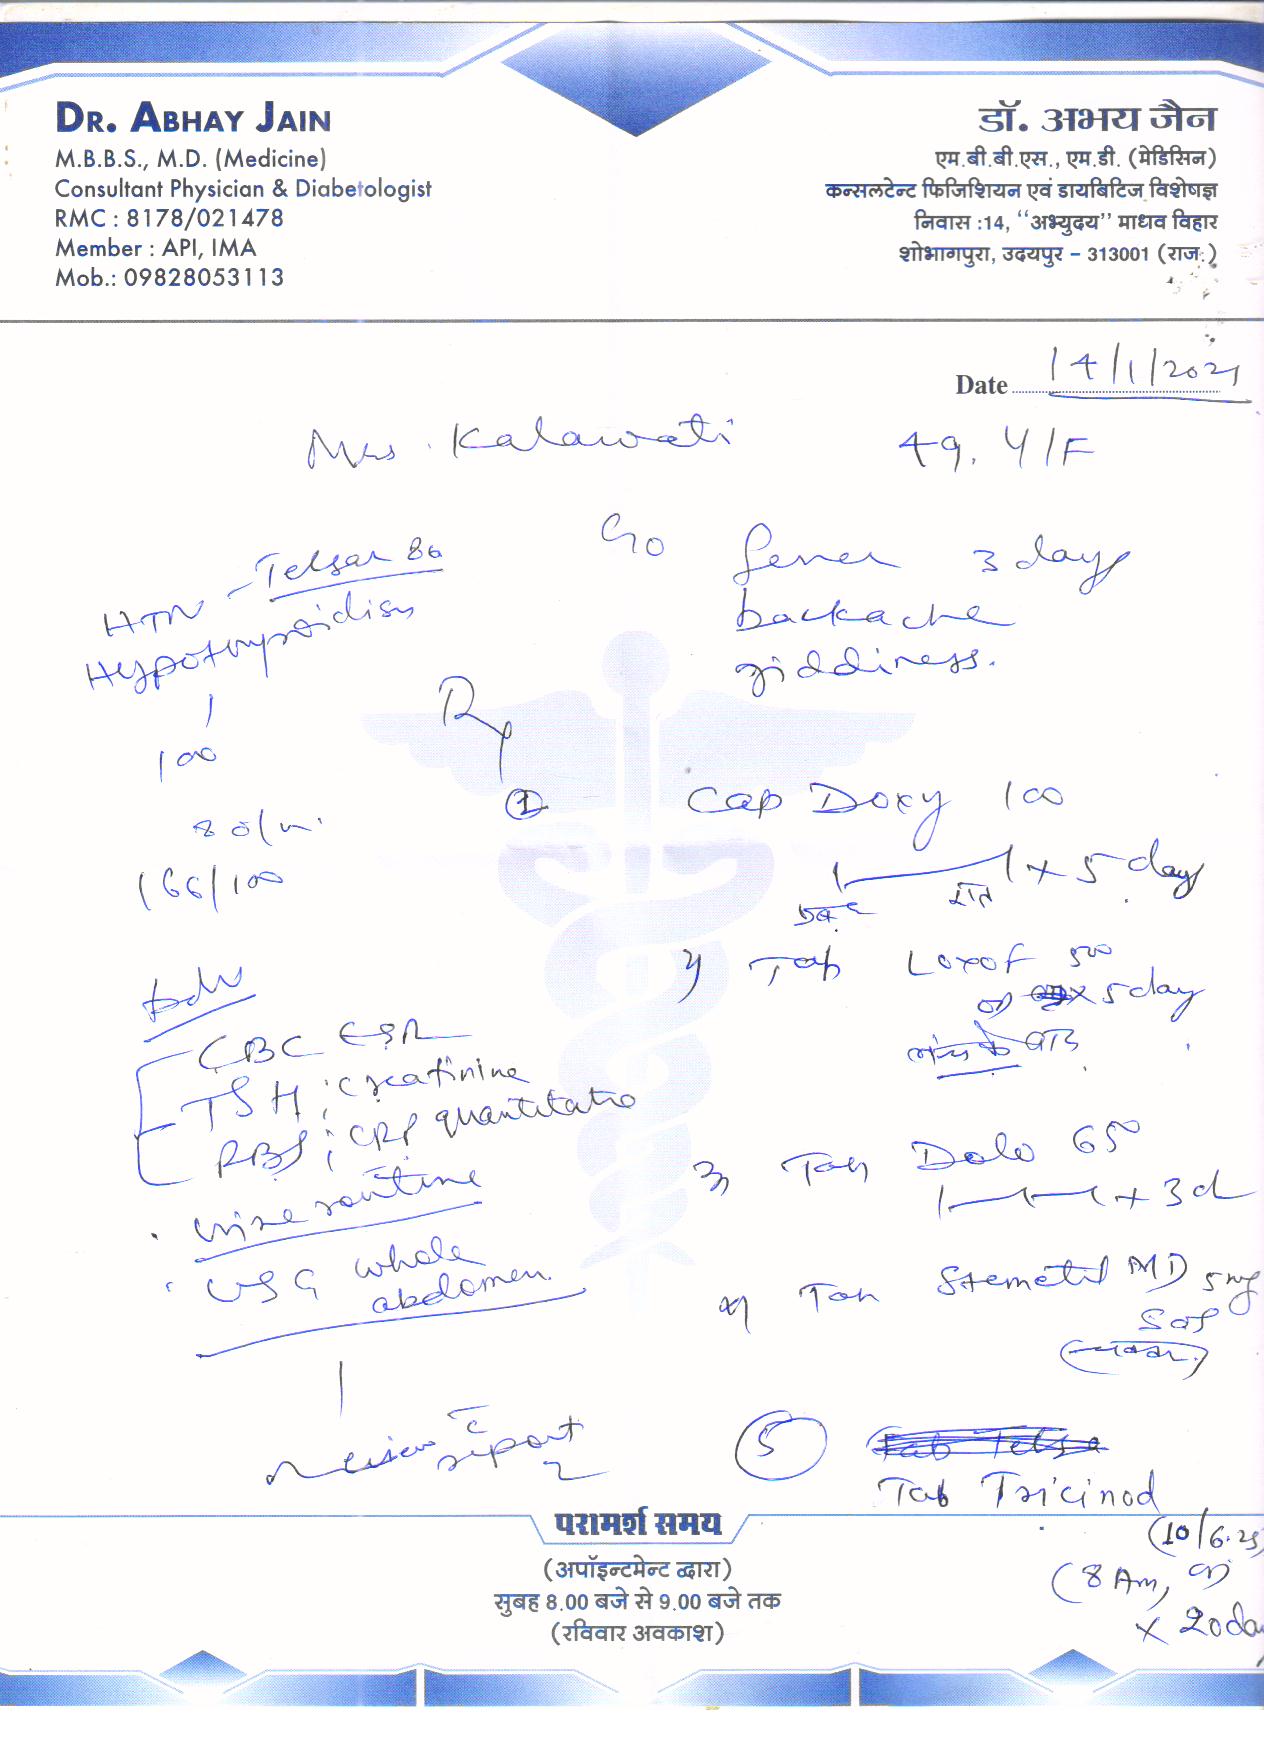 DR. ABHAY JAIN
M.B.B.S., M.D. (Medicine)
Consultant Physician & Diabetologist
RMC : 8178/021478
Member : API, IMA
Mob.: 09828053113
डॉ. अभय जैन
एम.बी.बी.एस., एम.डी. (मेडिसिन)
कन्सलटेन्ट फिजिशियन एवं डायबिटिज विशेषज्ञ
निवास :14, "अभ्युदय" माधव विहार
शोभागपुरा, उदयपुर – 313001 (राज.)
Date 14/1/2021
Mrs. Kalawati 49. Y/F
C/o fever 3 days
backache
giddiness.
HTN - Telsar 80
Hypothyroidism
100
80/m.
166/100
Adv
CBC ESR
TSH ; creatinine
RBS ; CRP quantitative
urine routine
USG whole
abdomen.
review c̄
report
Rx
① Cap Doxy 100
x 5 days
रात
२) Tab Loxof 500
x 5 day
३) Tab Dolo 650
+ 3d
४) Tab Stemetil MD 5 mg
SOS
(चक्कर)
⑤
Tab Tricinod
(10/6.25)
(8 Am,
x 20 da
परामर्श समय
(अपॉइन्टमेन्ट द्वारा)
सुबह 8.00 बजे से 9.00 बजे तक
(रविवार अवकाश)